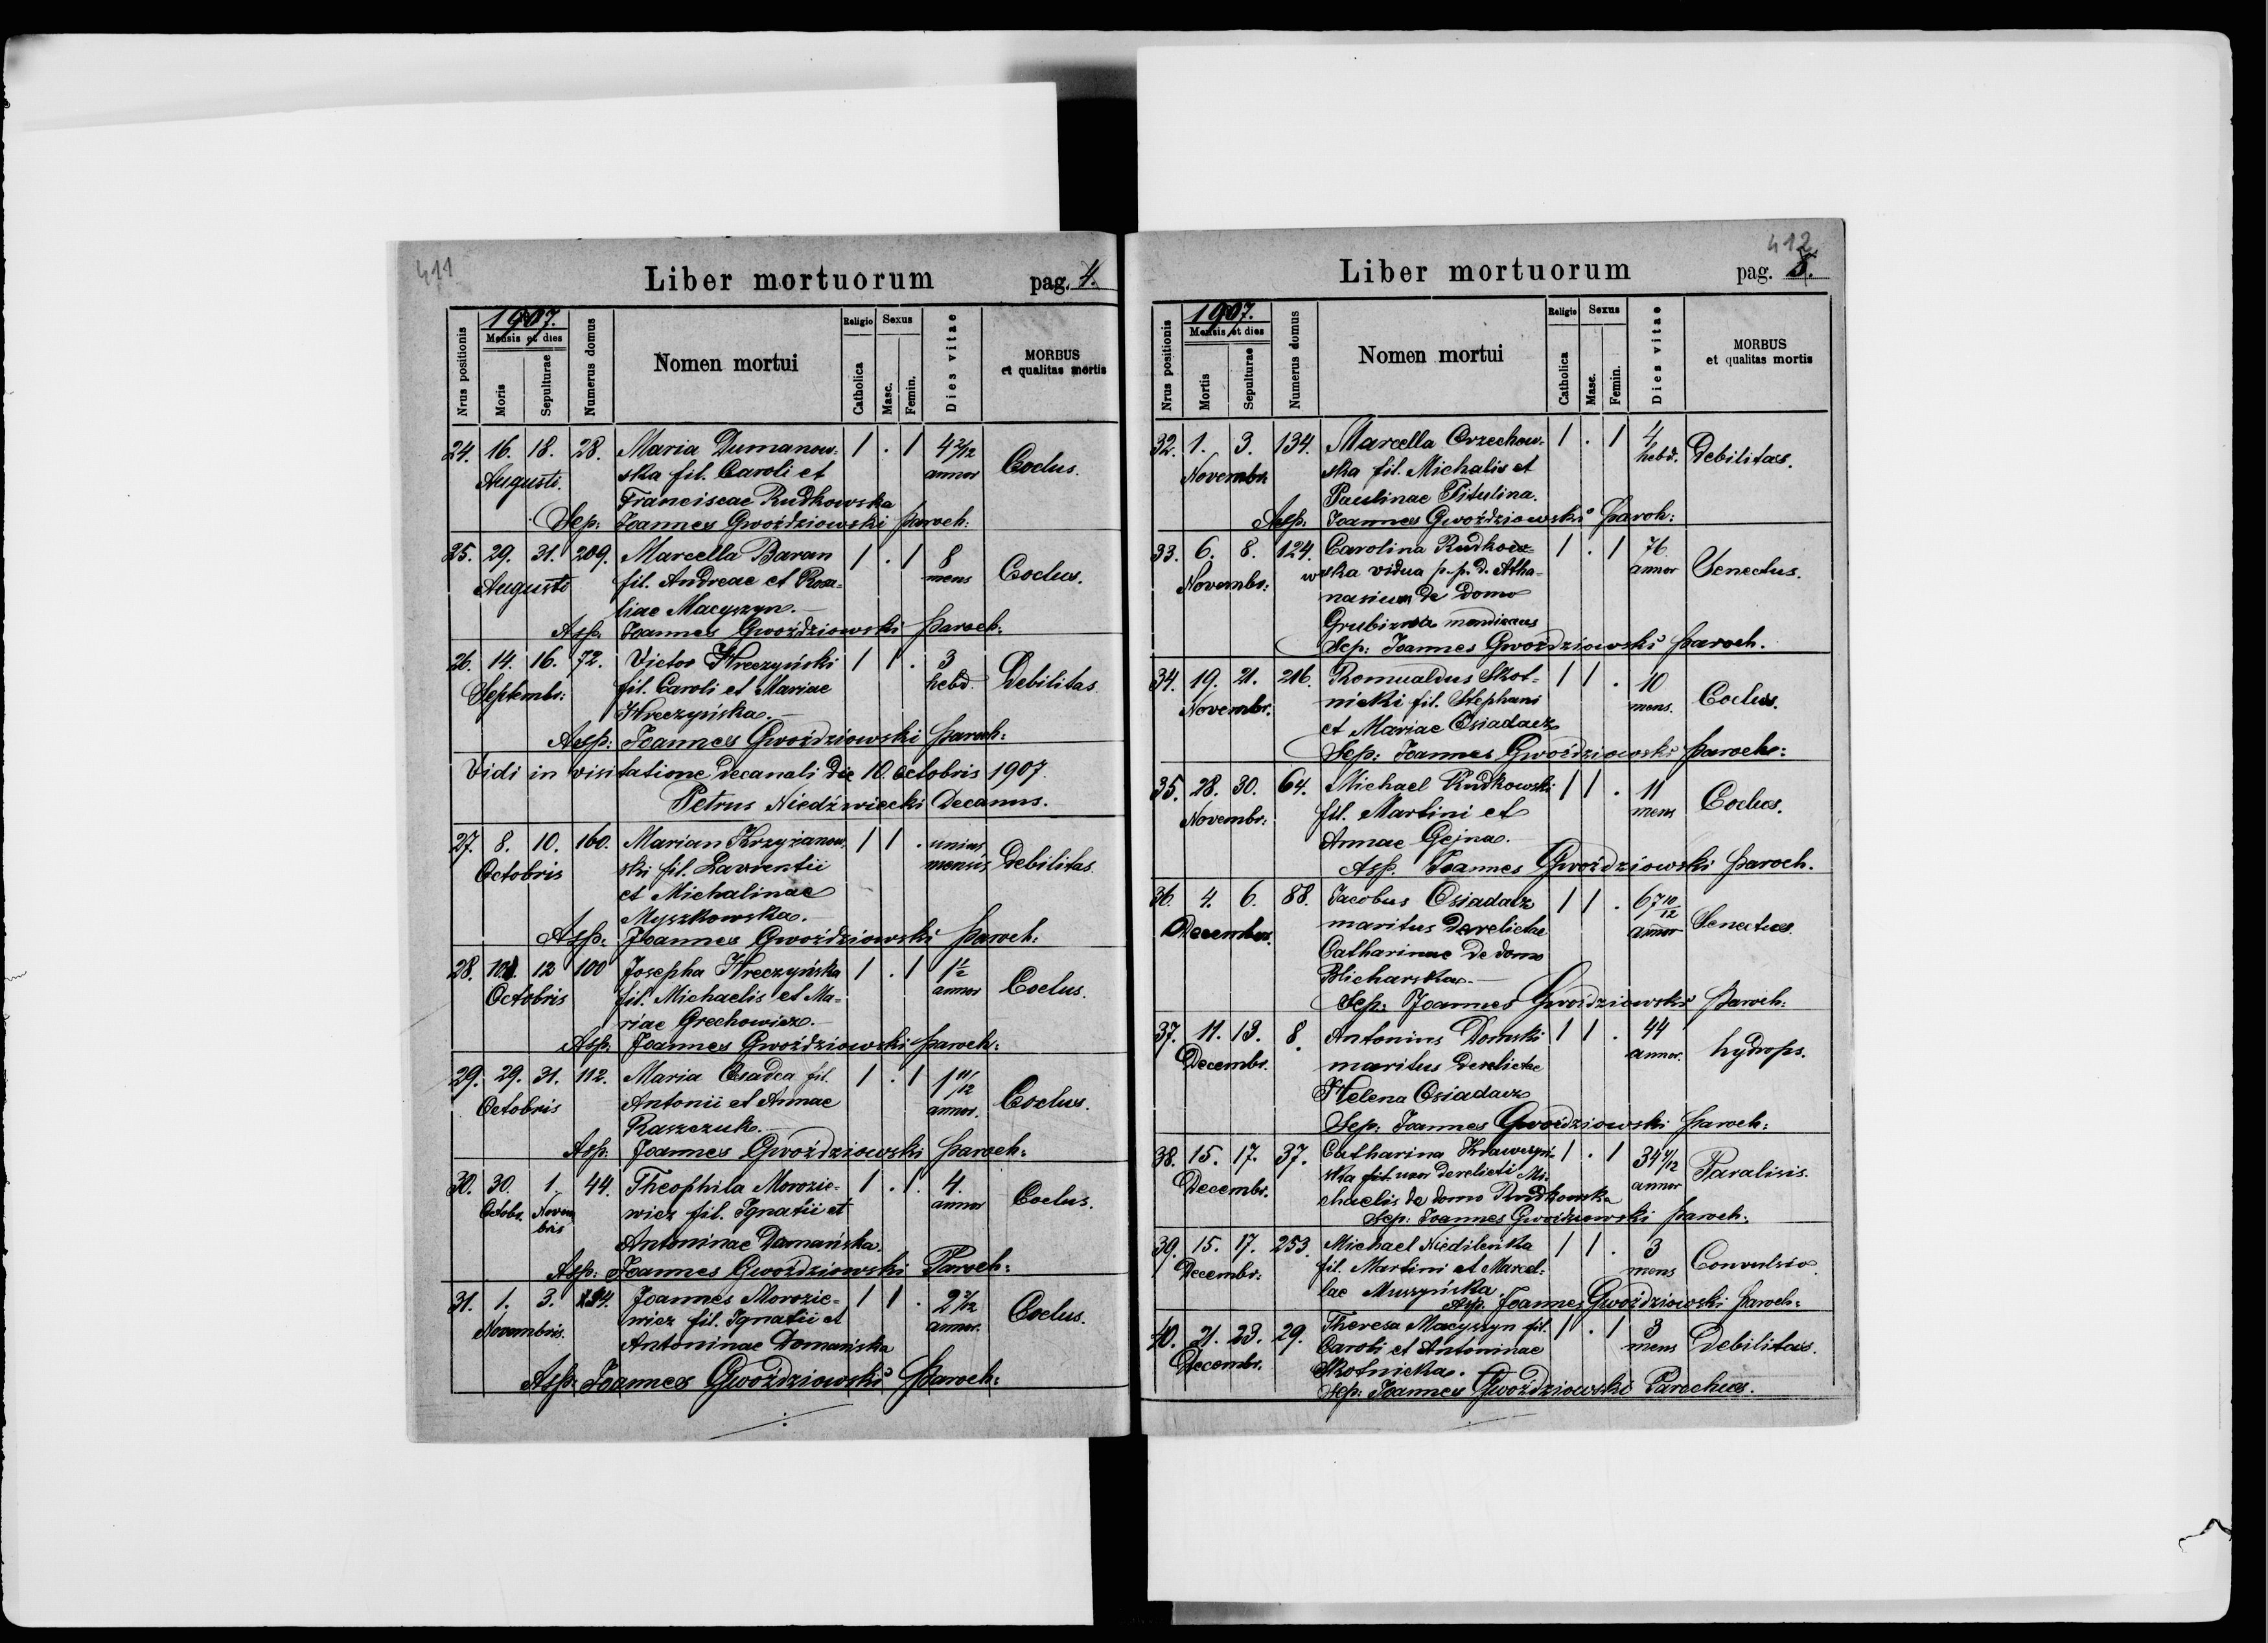 411
Liber mortuorum
pag. 4.
Nrus positionis
1907.
Mensis et dies
Moris
Sepulturae
Numerus domus
Nomen mortui
Religio
Catholica
Sexus
Masc.
Femin.
Dies vitae
MORBUS
et qualitas mortis
24. 16. 18. 28. Maria Dumanow- 1 . 1 4 2/12 Coclus.
Augusti. ska fil. Caroli et annor
Franciscae Rudkowska
Sep: Joannes Gwoździowski paroch:
25. 29. 31. 209. Marcella Baran 1 . 1 8 Coclus.
Augusti fil. Andreae et Rosa- mens
liae Macyszyn.
Asp. Joannes Gwoździowski paroch:
26. 14. 16. 72. Victor Hreczyński 1 1 . 3 Debilitas.
Septembr: fil. Caroli et Mariae hebd.
Hreczyńska.
Asp: Joannes Gwoździowski paroch:
Vidi in visitatione decanali die 10. octobris 1907.
Petrus Niedźwiecki Decanus.
27. 8. 10. 160. Marian Krzyżanow- 1 1 . unius Debilitas.
Octobris ski fil. Laurentii mensis
et Michalinae
Myszkowska.
Asp: Joannes Gwoździowski paroch:
28. 10. 12 100 Josepha Hreczyńska 1 . 1 1 1/2 Coclus.
Octobris fil. Michaelis et Ma- annor
riae Grechowicz.
Asp: Joannes Gwoździowski paroch:
29. 29. 31. 112. Maria Osadca fil. 1 . 1 1 11/12 Coclus.
Octobris Antonii et Annae annor.
Kaszczuk.
Asp: Joannes Gwoździowski paroch:
30. 30. 1. 44. Theophila Morozie- 1 . 1. 4. Coclus.
Octobr. Novem wicz fil. Ignatii et annor
bris
Antoninae Damańska.
Asp: Joannes Gwoździowski Paroch:
31. 1. 3. 94. Joannes Morozie- 1 1 . 2 2/12 Coclus.
Novembris. wicz fil. Ignatii et annor.
Antoninae Domańska
Asp: Joannes Gwoździowski paroch:
412
Liber mortuorum
pag. 5.
Nrus positionis
1907.
Mensis et dies
Mortis
Sepulturae
Numerus domus
Nomen mortui
Religio
Catholica
Sexus
Masc.
Femin.
Dies vitae
MORBUS
et qualitas mortis
32. 1. 3. 134. Marcella Orzechow- 1 . 1 4 Debilitas.
Novembr. ska fil. Michalis et hebd.
Paulinae Pitulina.
Asp. Joannes Gwoździowski paroh:
33. 6. 8. 124. Carolina Rudkow- 1 . 1 76 Senectus.
Novembr: wska vidua p. p. d. Atha- annor
nasium de domo
Grubizna
Sep: Joannes Gwoździowski paroch.
34. 19. 21. 216. Romualdus Skot- 1 1 . 10 Coclus.
Novembr. nicki fil. Stephani mens.
et Mariae Osiadacz
Sep: Joannes Gwoździowski paroch:
35. 28. 30. 64. Michael Rudkowski 1 1 . 11 Coclus.
Novembr: fil. Martini et mens
Annae Gejna.
Asp. Joannes Gwoździowski paroch.
36. 4. 6. 88. Jacobus Osiadacz 1 1 . 67 10/12 Senectus.
Decembr. maritus derelictae annor
Catharinae de domo
Blicharska.
Sep: Joannes Gwoździowski paroch:
37. 11. 13. 8. Antonius Domski 1 1 . 44 hydrops.
Decembr. maritus derelictae annor.
Helena Osiadacz
Sep: Joannes Gwoździowski paroch:
38. 15. 17. 37. Catharina Krawczyń- 1 . 1 34 4/12 Paralisis.
Decembr. ska fil uxor derelicti Mi- annor
chaelis de domo Rudkowska
Sep: Joannes Gwoździowski paroch:
39. 15. 17. 253. Michael Niedileńka 1 1 . 3 Convulsio.
Decembr: fil. Martini et Marcel- mens
lae Muszyńska.
Asp. Joannes Gwoździowski paroch:
40. 21. 23. 29. Theresa Macyszyn fil. 1 . 1 3 Debilitas.
Decembr. Caroli et Antoninae mens
Skotnicka.
Sep: Joannes Gwoździowski Parochus.